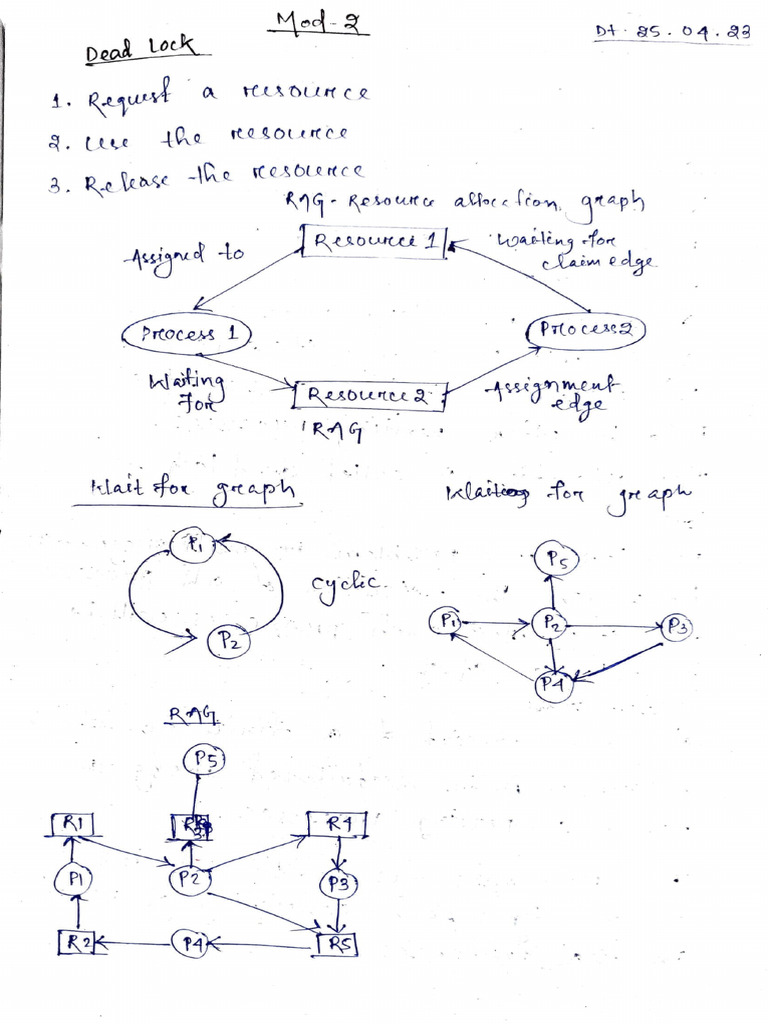 Mod-2
Dt. 25.04.23
Dead Lock
1. Request a resource
2. Use the resource
3. Release the resource
RAG - Resource allocation graph
Assigned to
Resource 1
Waiting for
claim edge
Process 1
Process 2
Waiting
for
Resource 2
Assignment
edge
RAG
Wait for graph
Waiting for graph
P1
cyclic
P2
P5
P1
P2
P3
P4
RAG
P5
R1
R4
P1
P2
P3
R2
P4
R5